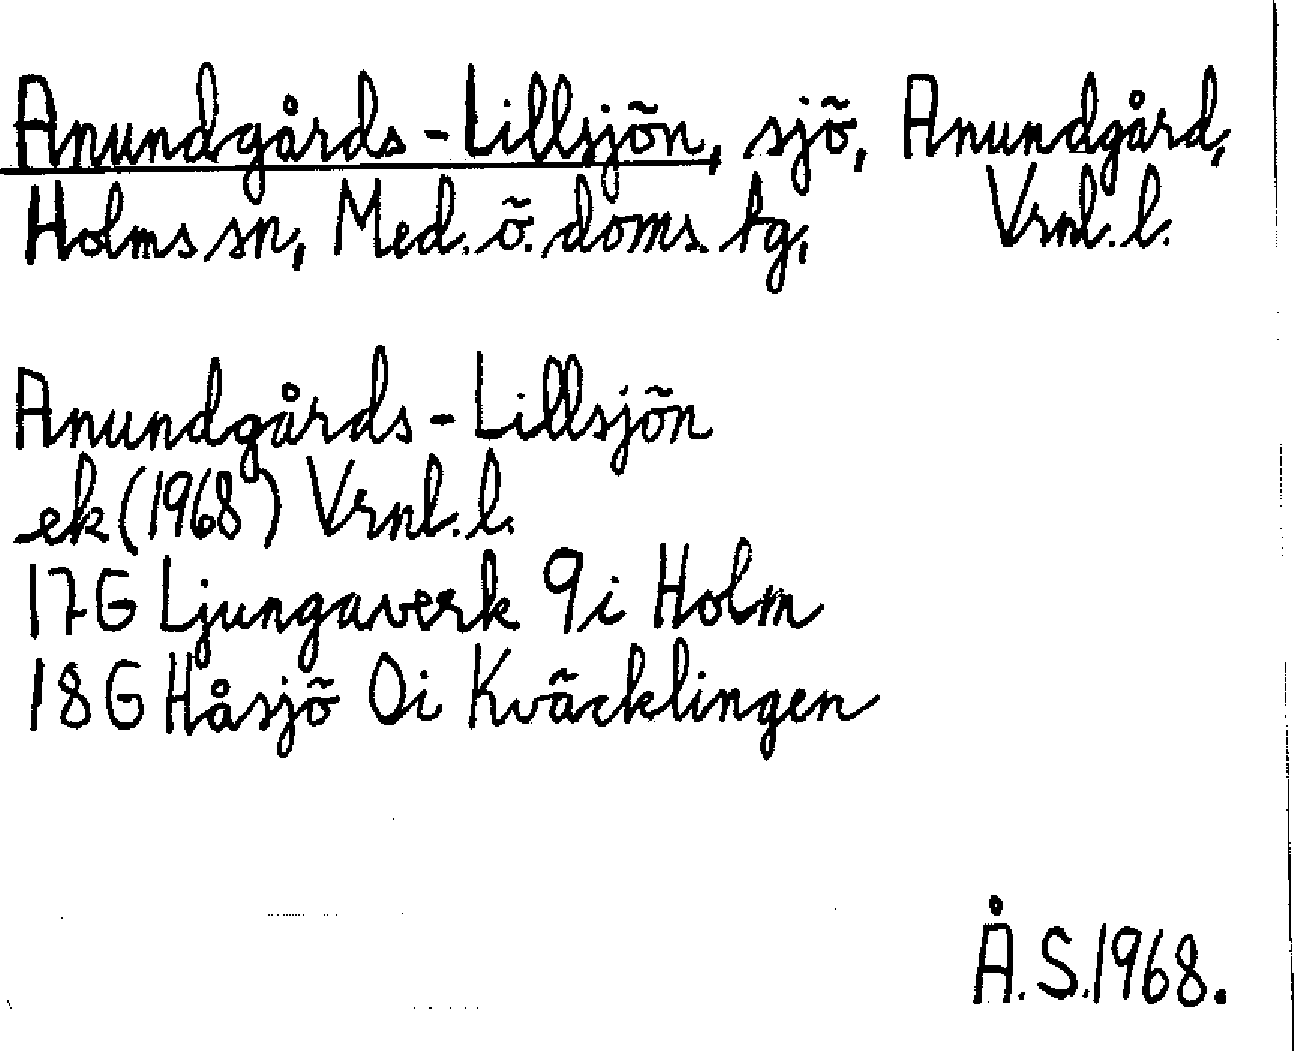 Anundgårds-Lillsjön, sjö, Anundgård,
Holms sn, Med. ö. doms. tg, Vrnl. l.
Anundgårds-Lillsjön
ek (1968) Vrnl. l.
17G Ljungaverk 9i Holm
18G Håsjö 0i Kväcklingen
Å.S. 1968.